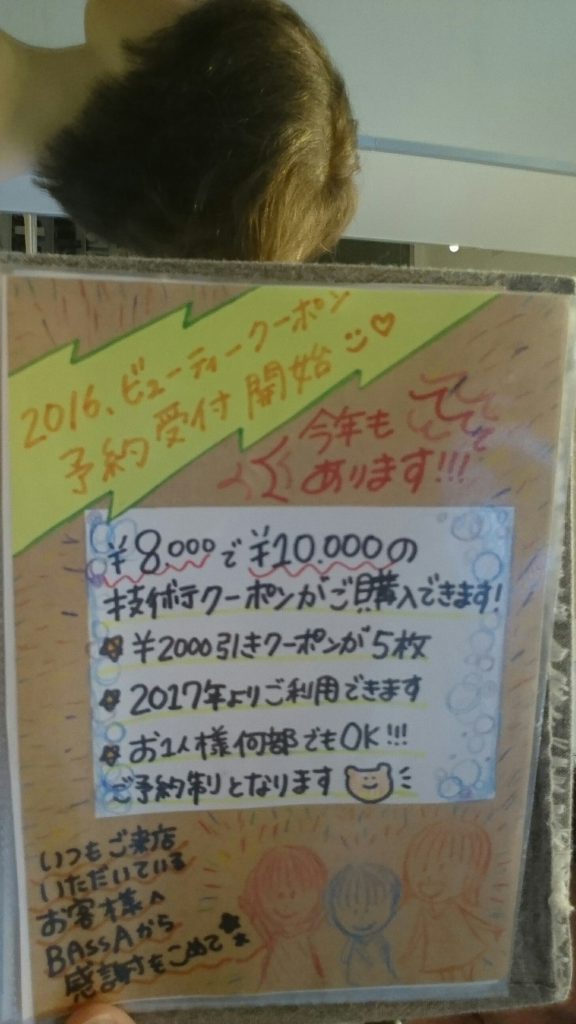 2016、ビューティークーポン
予約受付開始
今年も
あります!!!
¥8.000で¥10.000の
技術クーポンがご購入できます!
¥2000引きクーポンが5枚
2017年よりご利用できます
お1人様何部でもOK!!!
ご予約制りとなります
いつもご来店
いただいている
お客様へ
BASSAから
感謝をこめて